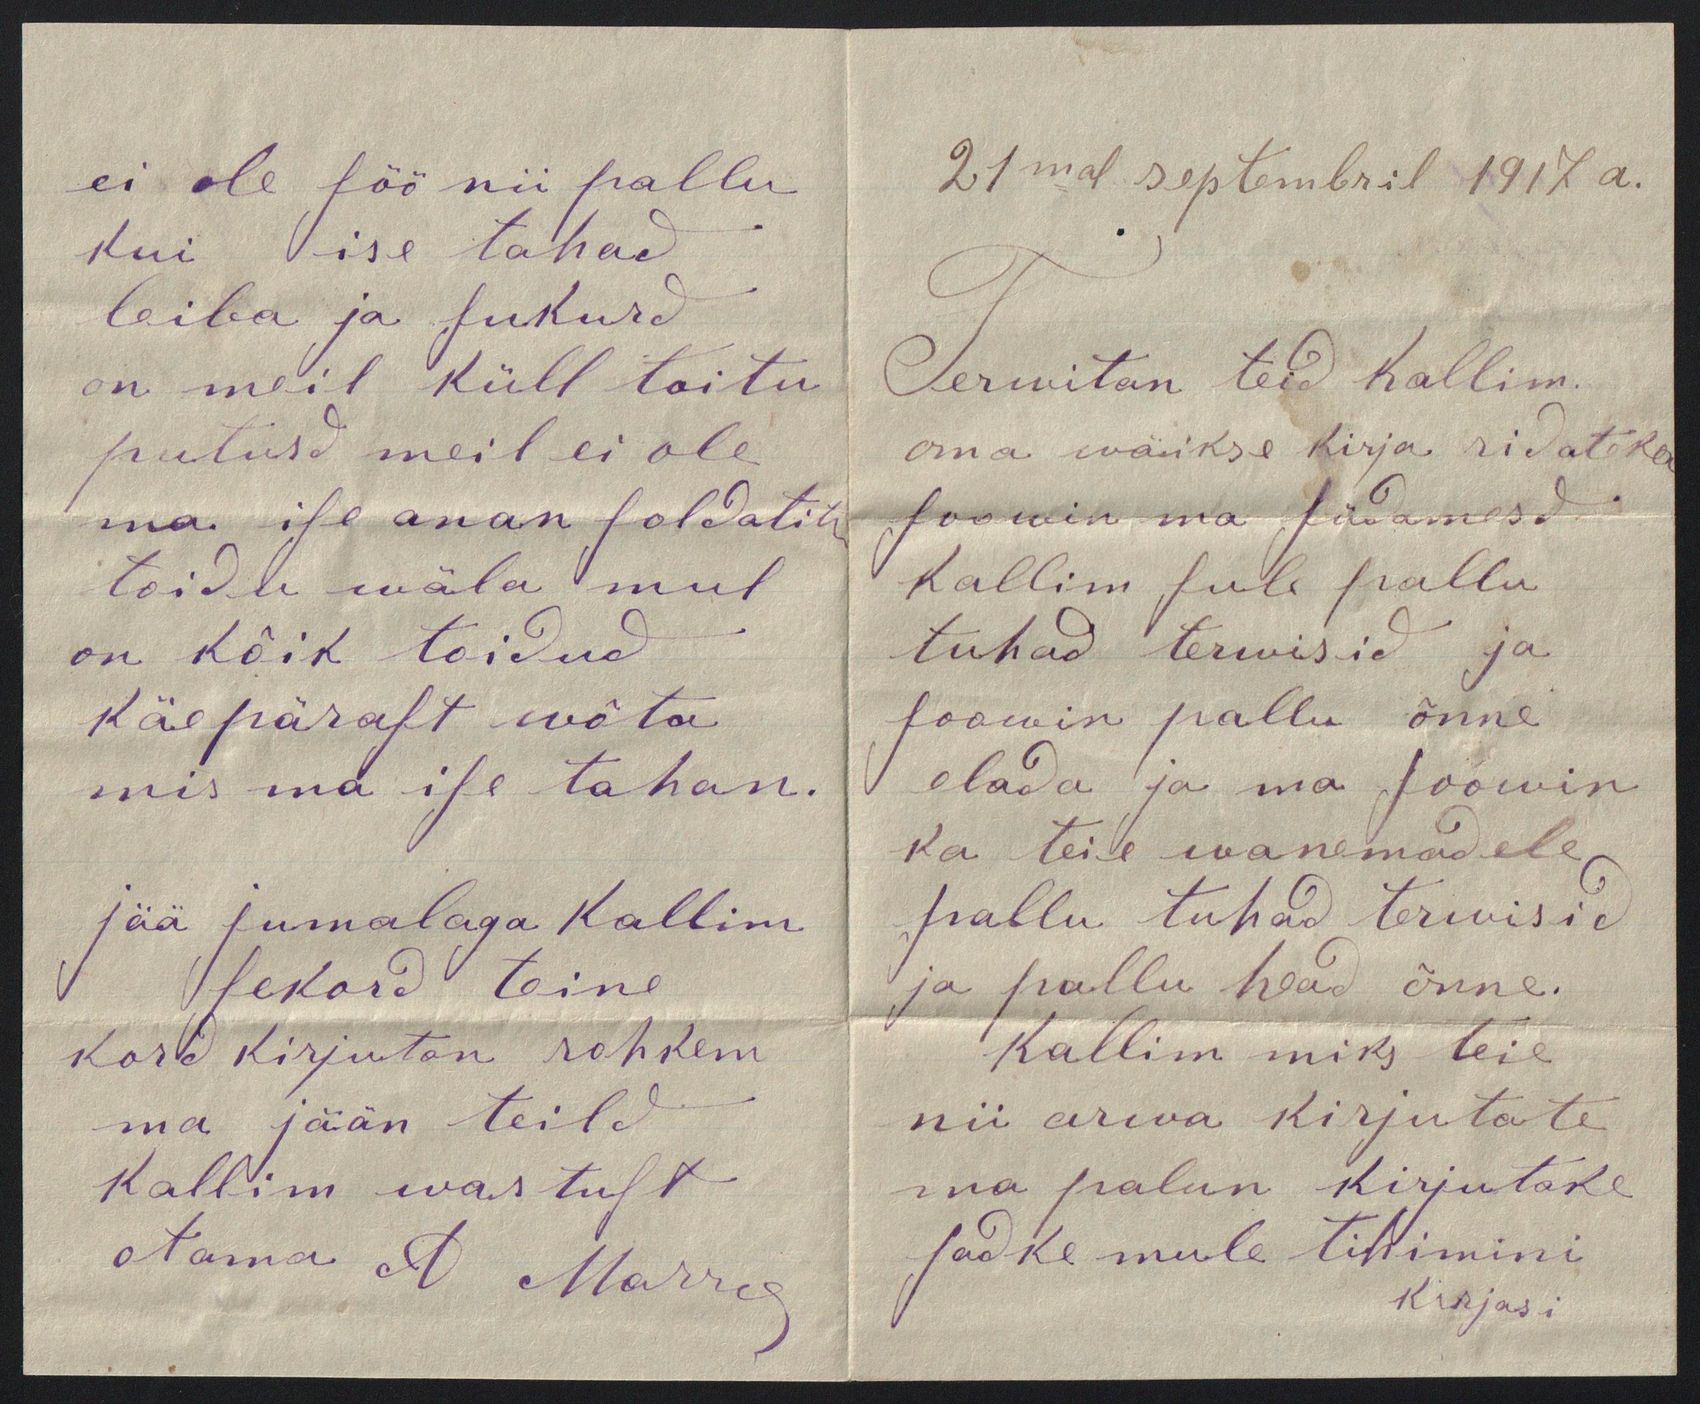 ei ole ſöö nii pallu
kui ise tahad
leiba ja ſukurd
on meil küll toitu
putusd meil ei ole
ma iſe anan ſoldatite
toidu wäla mul
on kõik toidud
käepäraſt wõta
mis ma iſe tahan.
jää jumalaga kallim
ſekord teine
kord kirjutan rohkem
ma jään teild
kallim wastuſt
otama A Marreg
21 mal septembril 1917 a.
Terwitan teid kallim.
oma wäikse kirja ridateka
ſoowin ma ſüdamesd
kallim ſule pallu
tuhad terwisid ja
ſoowin pallu õnne
elada ja ma ſoowin
ka teie wanemadele
pallu tuhad terwisid
ja pallu head õnne.
kallim miks teie
nii arwa kirjutate
ma palun kirjutake
ſadke mule tihimini
kirjasi